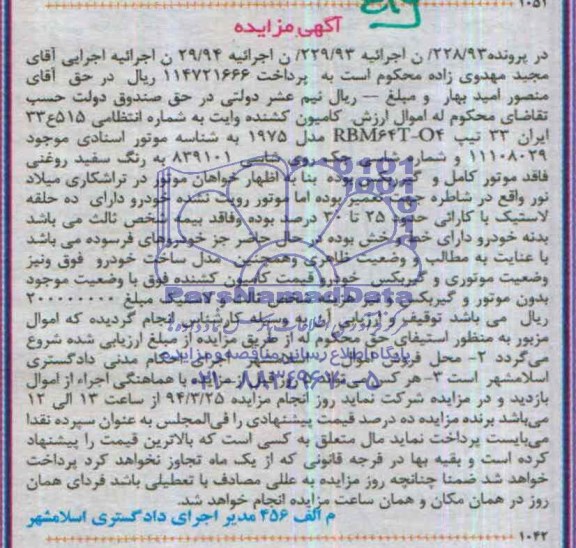 ۱۰۵۱
آگهی مزایده
در پرونده۲۲۸/۹۳/ ن اجرائیه ۲۲۹/۹۳/ ن اجرائیه ۲۹/۹۴ ن اجرائیه اجرایی آقای
مجید مهدوی زاده محکوم است به پرداخت ۱۱۴۷۲۱۶۶۶ ریال در حق آقای
منصور امید بهار و مبلغ — ریال نیم عشر دولتی در حق صندوق دولت حسب
تقاضای محکوم له اموال ارزش کامیون کشنده وایت به شماره انتظامی ۵۱۵ع۳۳
ایران ۳۳ تیپ RBM۶۴T-O۴ مدل ۱۹۷۵ به شناسه موتور اسنادی موجود
۱۱۱۰۸۰۲۹ و شماره شاسی حک روی شاسی ۸۳۹۱۰۱ به رنگ سفید روغنی
فاقد موتور کامل و گیربکس بوده بنا به اظهار خواهان موتور در تراشکاری میلاد
نور واقع در شاطره جهت تعمیر بوده اما موتور رویت نشده خودرو دارای ده حلقه
لاستیک با کارائی حدود ۲۵ تا ۳۰ درصد بوده وفاقد بیمه شخص ثالث می باشد
بدنه خودرو دارای خط وخش بوده در حال حاضر جز خودروهای فرسوده می باشد
با عنایت به مطالب و وضعیت ظاهری وهمچنین مدل ساخت خودرو فوق ونیز
وضعیت موتوری و گیربکس خودرو قیمت کامیون کشنده فوق با وضعیت موجود
بدون موتور و گیربکس لاستیک مبلغ ۲۰۰۰۰۰۰۰۰
ریال می باشد توقیف و ارزیابی آن به وسیله کارشناس انجام گردیده که اموال
مزبور به منظور استیفای حق محکوم له از طریق مزایده از مبلغ ارزیابی شده شروع
میگردد ۲- محل فروش اموال اسلامشهر اجرای احکام مدنی دادگستری
اسلامشهر است ۳- هر کس می‌تواند روز قبل از مزایده با هماهنگی اجرا از اموال
بازدید و در مزایده شرکت نماید روز انجام مزایده ۹۴/۳/۲۵ از ساعت ۱۳ الی ۱۲
می‌باشد برنده مزایده ده درصد قیمت پیشنهادی را فی‌المجلس به عنوان سپرده نقدا
می‌بایست پرداخت نماید مال متعلق به کسی است که بالاترین قیمت را پیشنهاد
کرده است و بقیه بها در فرجه قانونی که از یک ماه تجاوز نخواهد کرد پرداخت
خواهد شد ضمنا چنانچه روز مزایده به عللی مصادف با تعطیلی باشد فردای همان
روز در همان مکان و همان ساعت مزایده انجام خواهد شد.
م الف ۴۵۶ مدیر اجرای دادگستری اسلامشهر
۱۰۴۲
ParsNamadData
پایگاه اطلاع رسانی مناقصه و مزایده
۰۲۱-۸۸۳۴۹۶۷۰-۵